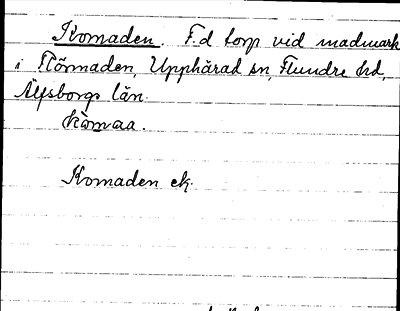 Komaden. F.d torp vid madmark
i Flörmaden, Upphärad sn, Flundre hd,
Älvsborgs län.
kòmaa.
Komaden ek.